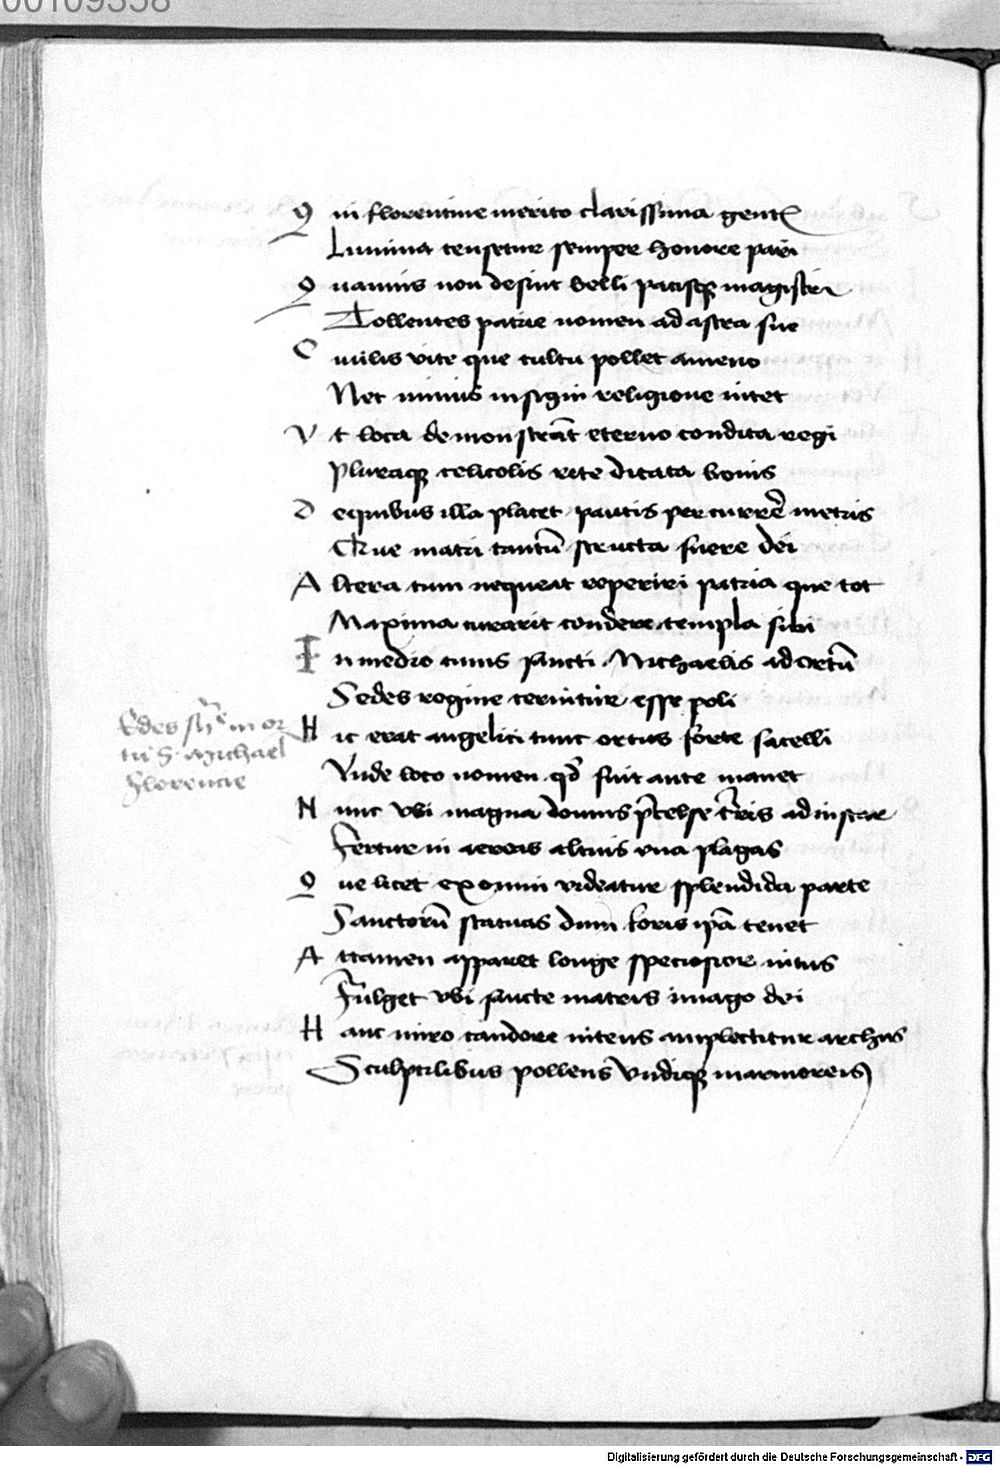 00109358
Qui florentine merito clarissima gentis
Lumina censetur semper honore pari
Quamuis non desint belli pacisqȝ magistri
Tollentes patrie nomen ad astra sue
Ciuilis vite que cultu pollet ameno
Nec minus insigni religione nitet
Vt loca demonstrāt eterno condita regi
Pluraqȝ celicolis rite dicata bonis
De quibus illa placet paucis percurrē metris
Que matri tantū structa fuere dei
Altera cum nequeat reperiri patria que tot
Maxima curarit condere templa sibi
In medio cuius sancti Michaelis ad ortū
Sedes regine cernitur esse poli
Edes in or
tu S. Michael
Florencie
Hic erat angelici tunc ortus forte sacelli
Vnde loco nomen qd̄ fuit ante manet
Nunc vbi magna domus p̄celse t̄ris ad instar
Fertur in aereas altius vna plagas
Que licet ex omni videatur splendida parte
Sanctorū statuas dum foris ip̄a tenet
Attamen apparet longe speciosior intus
Fulget vbi sancte matris imago dei
Hanc miro candore nitens amplectitur archus
Sculptilibus pollens vndiqȝ marmoreis
Digitalisierung gefördert durch die Deutsche Forschungsgemeinschaft - DFG